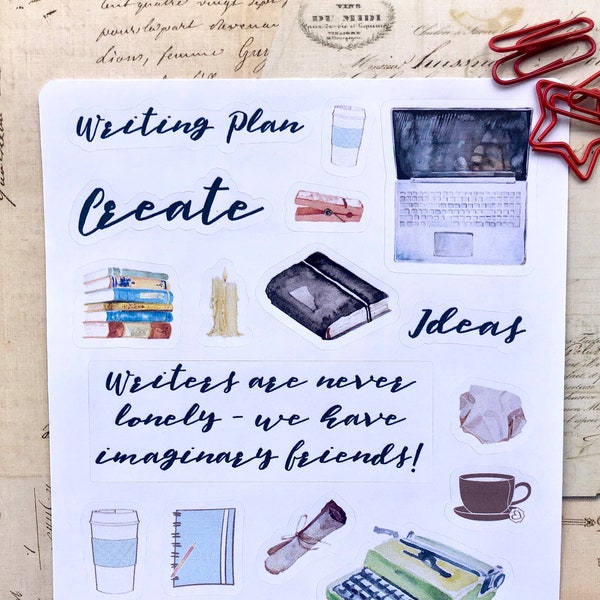 VINS
DU MIDI
Writing Plan
Create
Ideas
Writers are never
lonely - we have
imaginary friends!